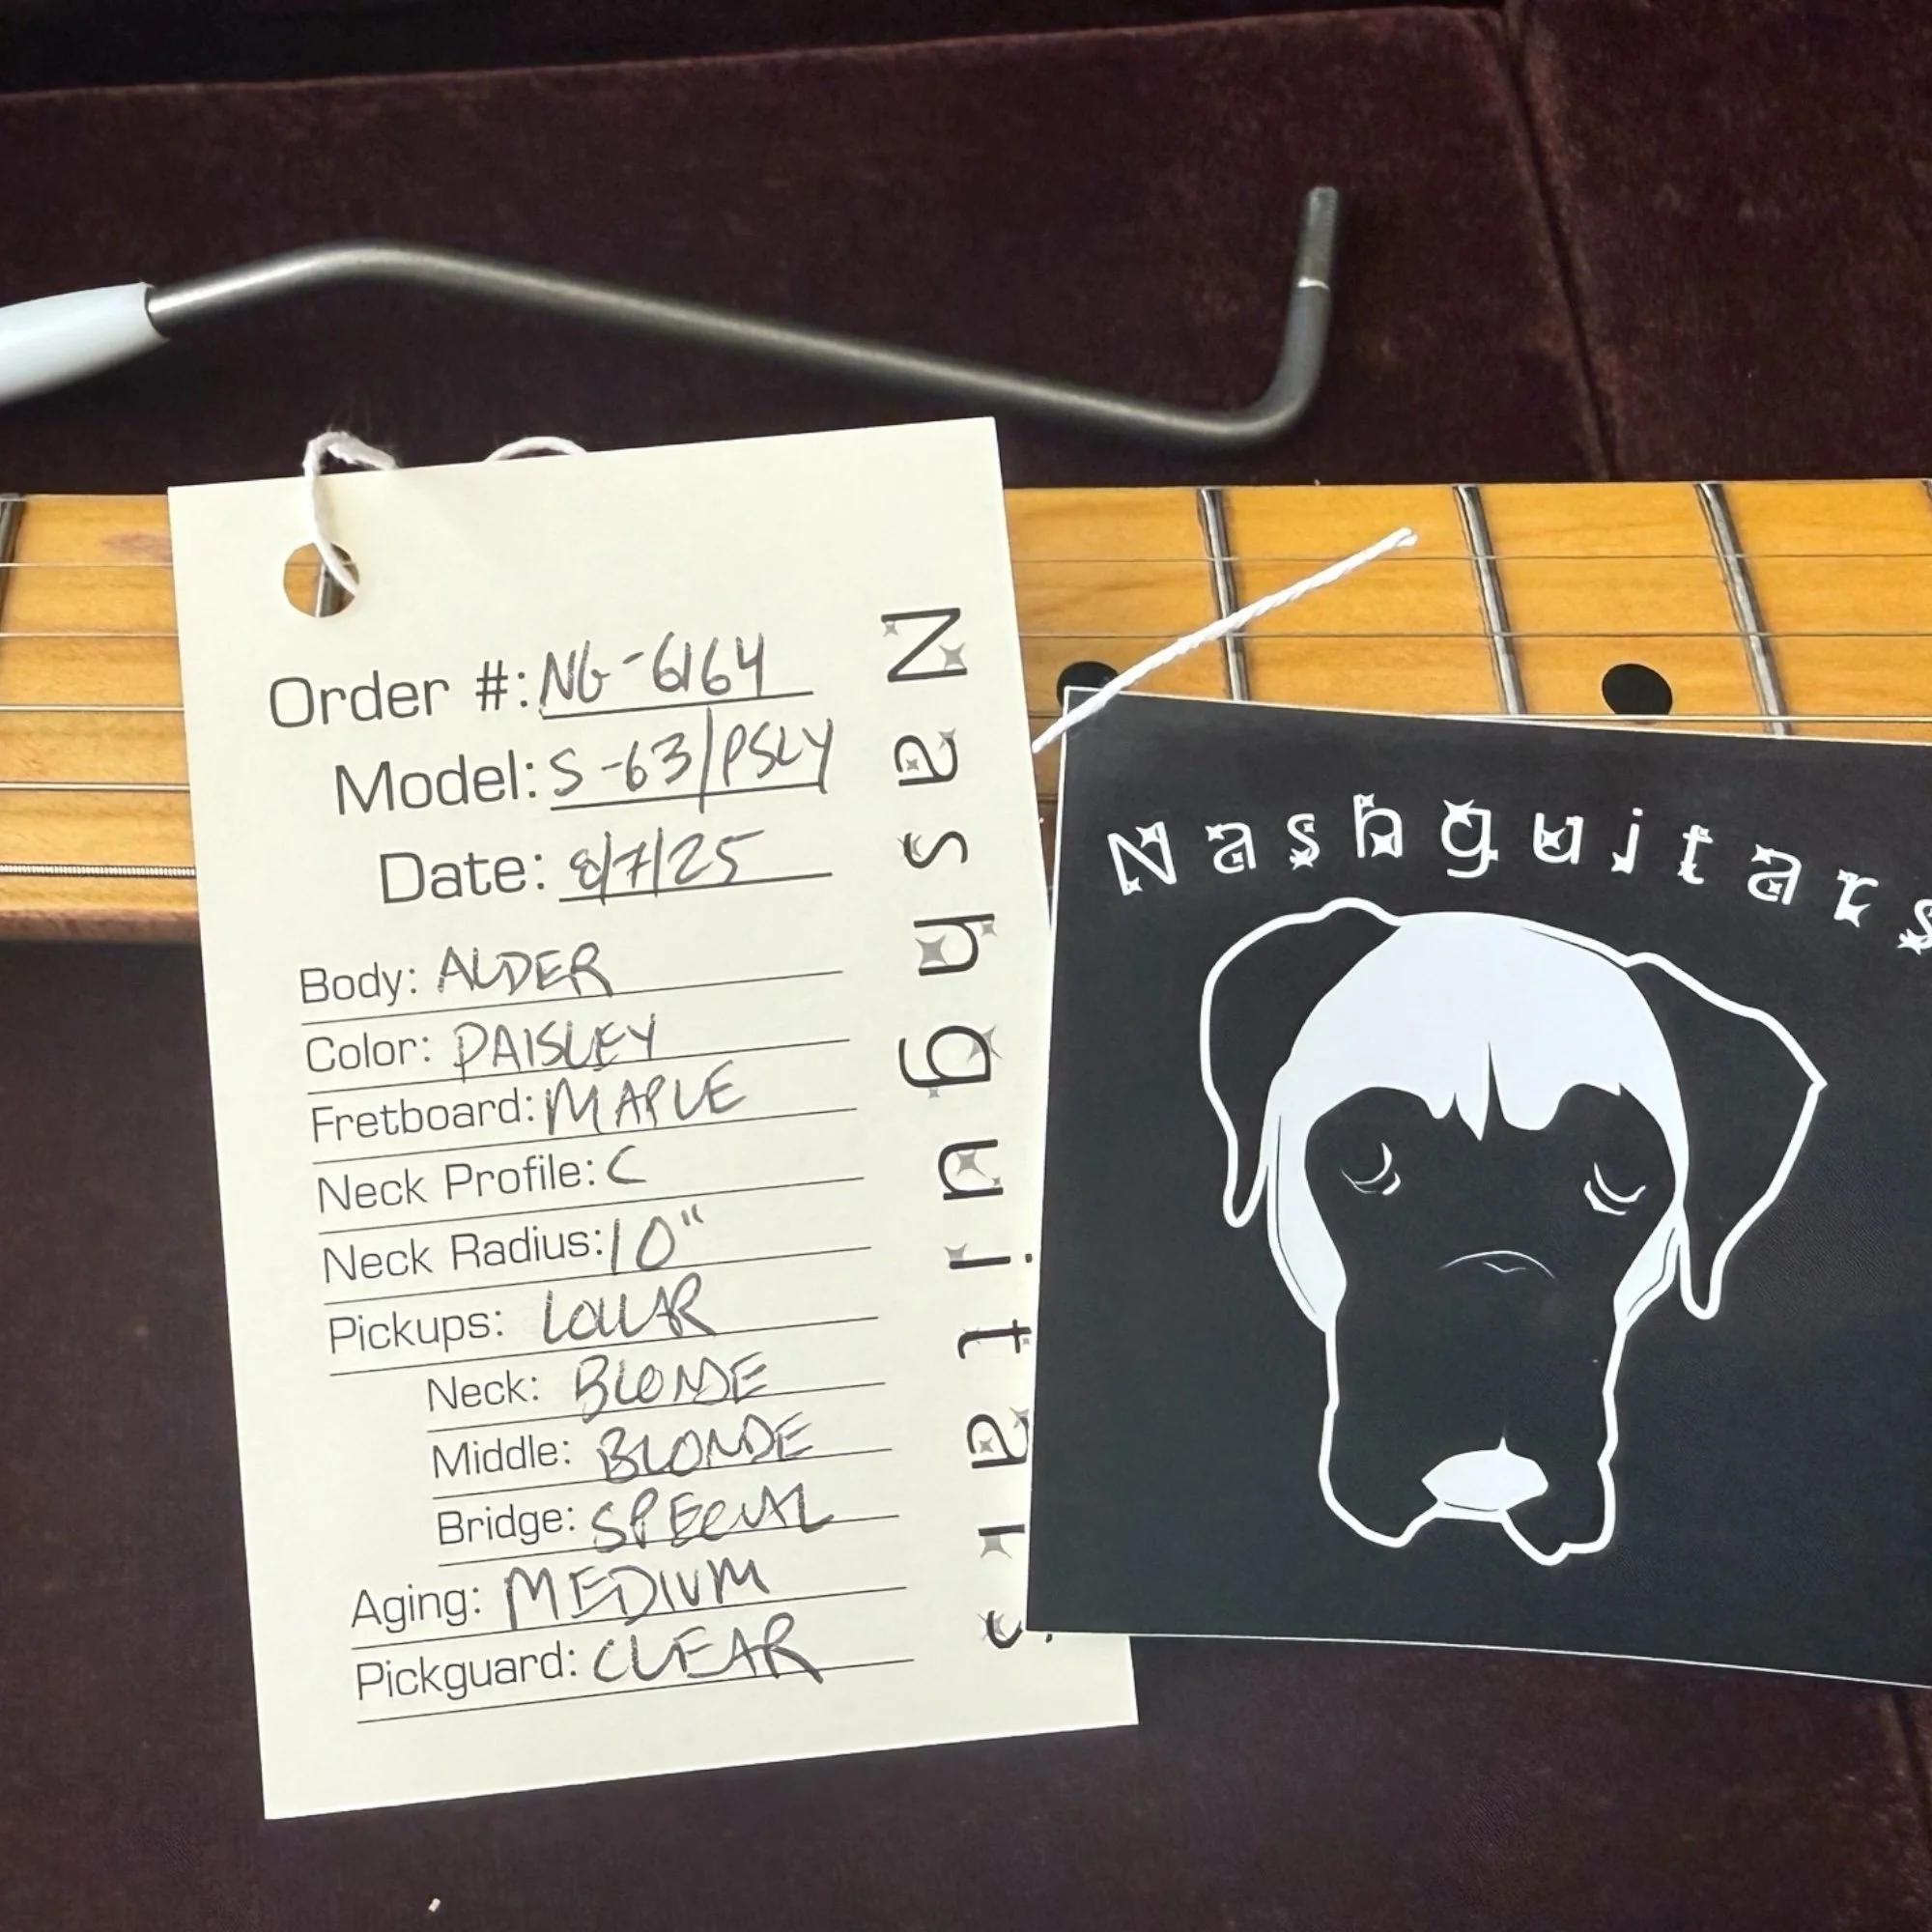 Order #: NG-6164
Model: S-63/PSLY
Date: 8/7/25
Body: ALDER
Color: PAISLEY
Fretboard: MAPLE
Neck Profile: C
Neck Radius: 10"
Pickups: LOLLAR
Neck: BLONDE
Middle: BLONDE
Bridge: SPECIAL
Aging: MEDIUM
Pickguard: CLEAR
Nashguitars
Nashguitars